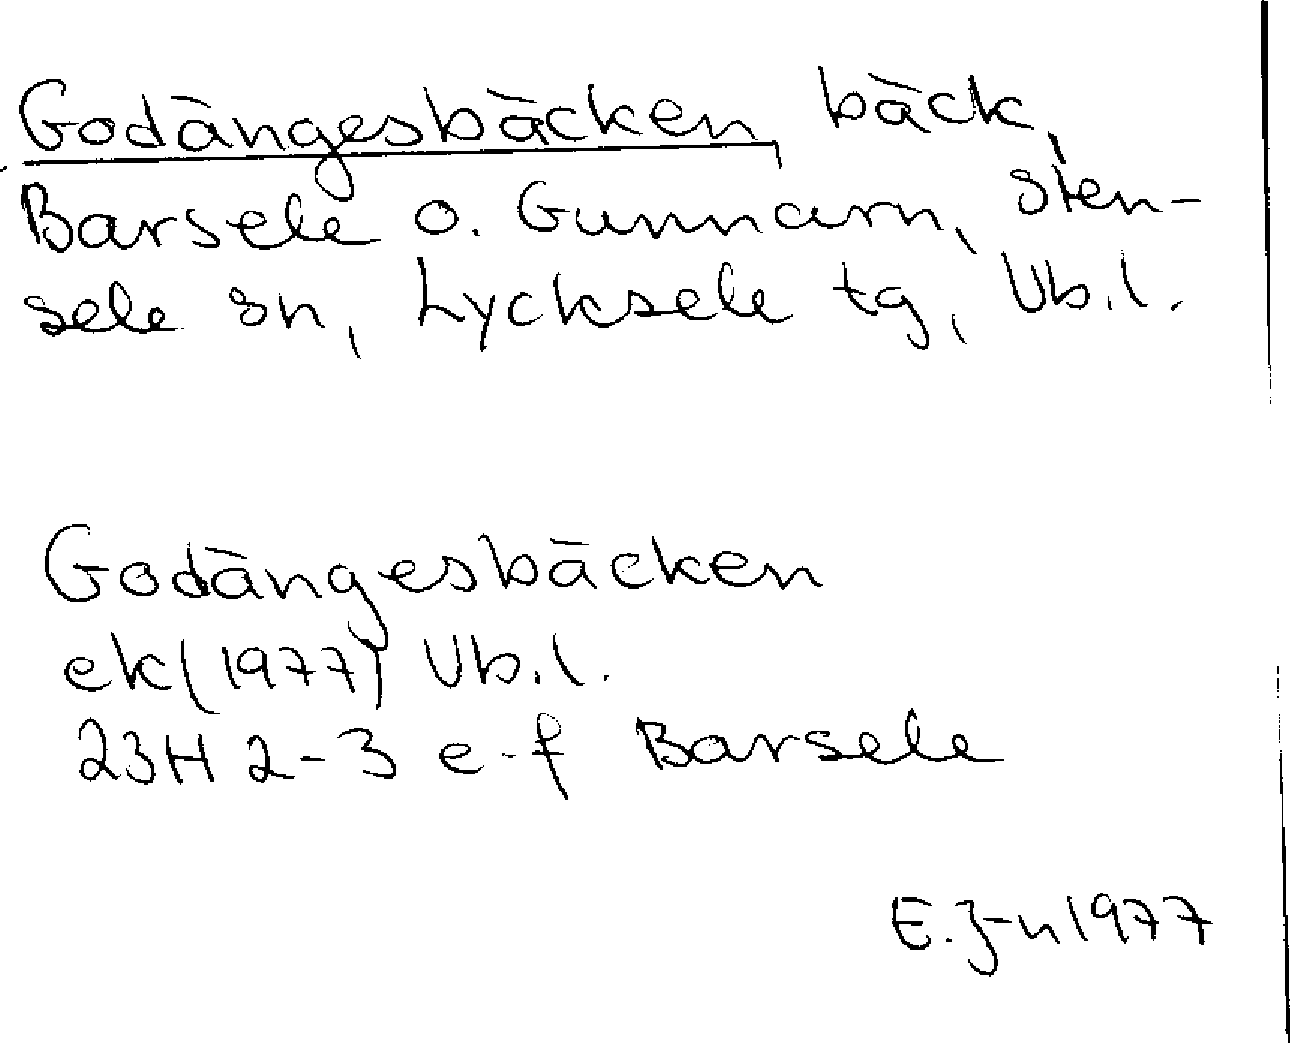 Godängesbäcken, bäck,
Barsele o. Gunnarn, Sten-
sele sn, Lycksele tg, Vb.l.
Godängesbäcken
ek (1977) Vb.l.
23H 2-3 e-f Barsele
E.J-n 1977